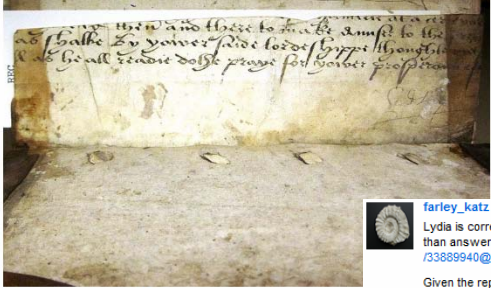 at a
then and there to make answer to the
as shalbe By yower saide lordeshippe thoughte
as he all readie dothe praye for yower prosperous
REC
farley_katz
Lydia is corre
than answer
/33889940@
Given the rep